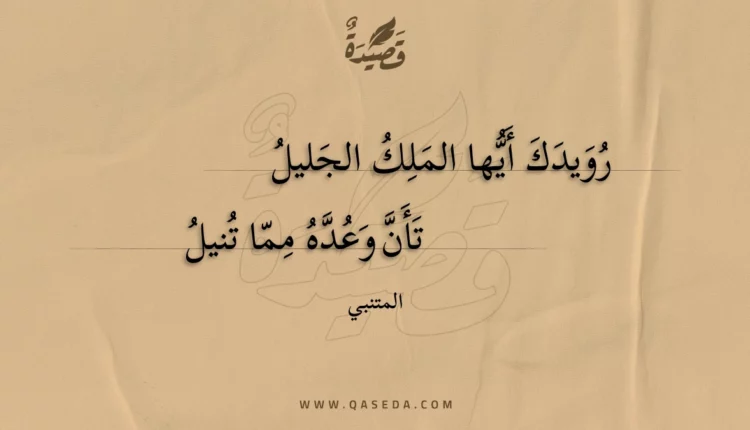 قَصِيدَةٌ
رُوَيدَكَ أَيُّها المَلِكُ الجَليلُ
تَأَنَّ وَعُدَّهُ مِمّا تُنيلُ
المتنبي
WWW.QASEDA.COM